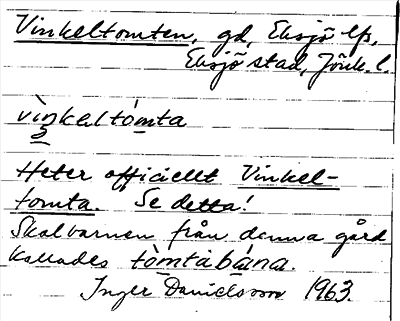 Vinkeltomten, gd, Eksjö lfs,
Eksjö stad, Jönk. l.
vìnkeltòmta
Heter officiellt Vinkel-
tomta. Se detta!
Skolbarnen från denna gård
kallades tòmtabána.
Inger Danielsson 1963.